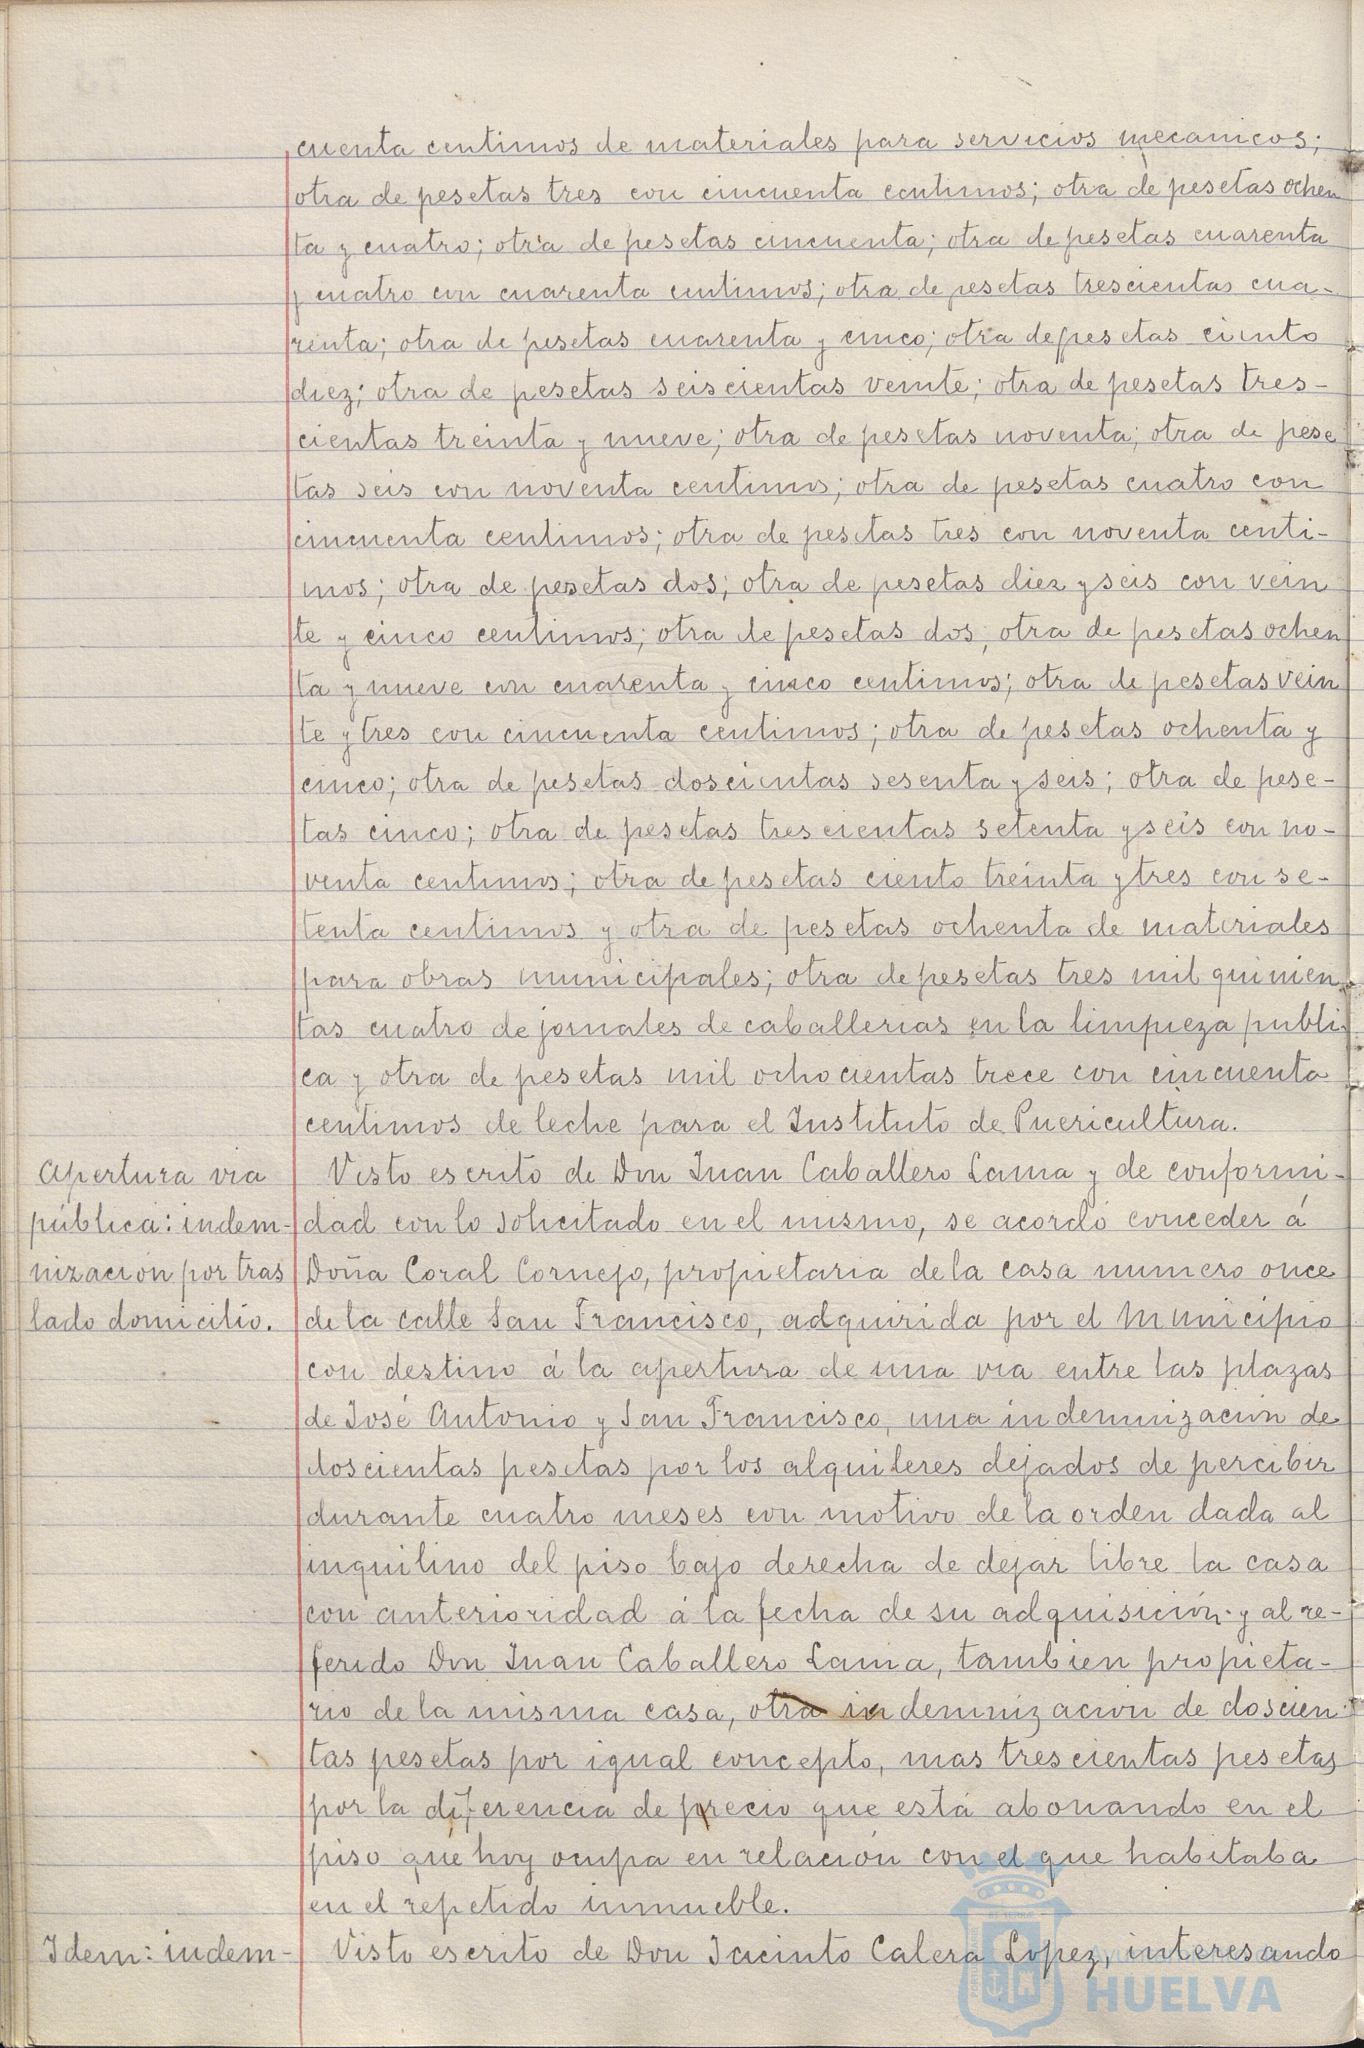 cuenta centimos de materiales para servicios mecanicos;
otra de pesetas tres con cincuenta centimos; otra de pesetas ochen
ta y cuatro; otra de pesetas cincuenta; otra de pesetas cuarenta
y cuatro con cuarenta centimos; otra de pesetas trescientas cua-
renta; otra de pesetas cuarenta y cinco; otra de pesetas ciento
diez; otra de pesetas seiscientas veinte; otra de pesetas tres-
cientas treinta y nueve; otra de pesetas noventa; otra de pese
tas seis con noventa centimos; otra de pesetas cuatro con
cincuenta centimos; otra de pesetas tres con noventa centi-
mos; otra de pesetas dos; otra de pesetas diez y seis con vein
te y cinco centimos; otra de pesetas dos; otra de pesetas ochen
ta y nueve con cuarenta y cinco centimos; otra de pesetas vein
te y tres con cincuenta centimos; otra de pesetas ochenta y
cinco; otra de pesetas doscientas sesenta y seis; otra de pese-
tas cinco; otra de pesetas trescientas setenta y seis con no-
venta centimos; otra de pesetas ciento treinta y tres con se-
tenta centimos y otra de pesetas ochenta de materiales
para obras municipales; otra de pesetas tres mil quinien
tas cuatro de jornales de caballerias en la limpieza publi-
ca y otra de pesetas mil ochocientas trece con cincuenta
centimos de leche para el Instituto de Puericultura.
Apertura via
pública: indem-
nización por tras
lado domicilio.
Visto escrito de Don Juan Caballero Lama y de conformi-
dad con lo solicitado en el mismo, se acordó conceder á
Doña Coral Cornejo, propietaria de la casa numero once
de la calle San Francisco, adquirida por el Municipio
con destino á la apertura de una via entre las plazas
de José Antonio y San Francisco, una indemnización de
doscientas pesetas por los alquileres dejados de percibir
durante cuatro meses con motivo de la orden dada al
inquilino del piso bajo derecha de dejar libre la casa
con anterioridad á la fecha de su adquisición y al re-
ferido Don Juan Caballero Lama, tambien propieta-
rio de la misma casa, otra indemnización de doscien-
tas pesetas por igual concepto, mas trescientas pesetas
por la diferencia de precio que está abonando en el
piso que hoy ocupa en relación con el que habitaba
en el repetido inmueble.
Idem: indem-
Visto escrito de Don Jacinto Calera Lopez, interesando
HUELVA